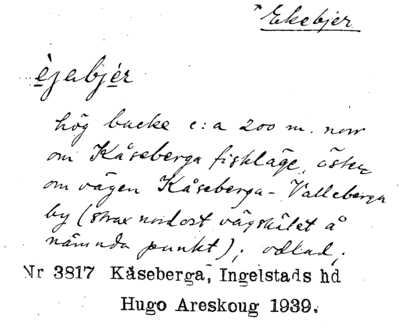 Ekebjer
èjabjér
hög backe c:a 200 m. norr
om Kåseberga fiskläge, öster
om vägen Kåseberga - Valleberga
by (strax nordost vägskälet å
nämnda punkt); odlad;
Nr 3817 Kåseberga, Ingelstads hd
Hugo Areskoug 1939.